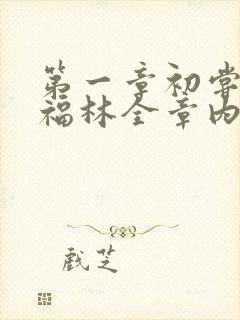 第一章初尝
福林全章内
戏芝